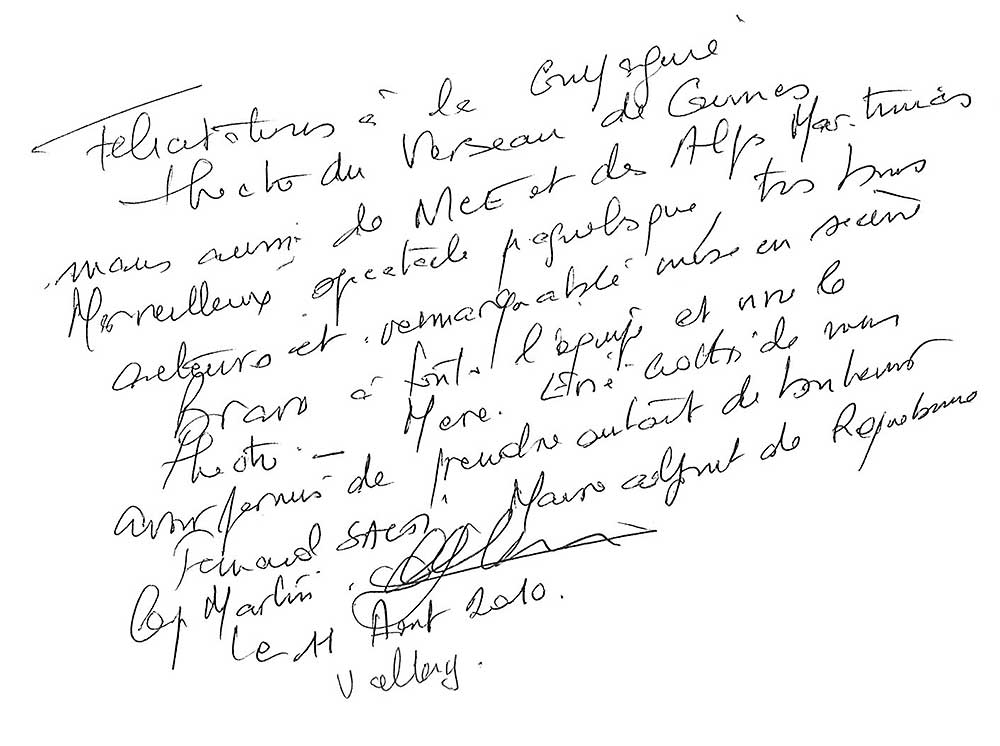 Félicitations à la Compagnie
théâtre du Verseau de Cannes
mais aussi de MCE et des Alpes Maritimes
Merveilleux spectacle très bons
acteurs et remarquable mise en scène
Bravo à toute l'équipe et vive le
théâtre — Merci de nous
avoir permis de prendre autant de bonheur
Fernand Maire adjoint de Roquebrune
Cap Martin.
Le 11 Août 2010.
Vallery.